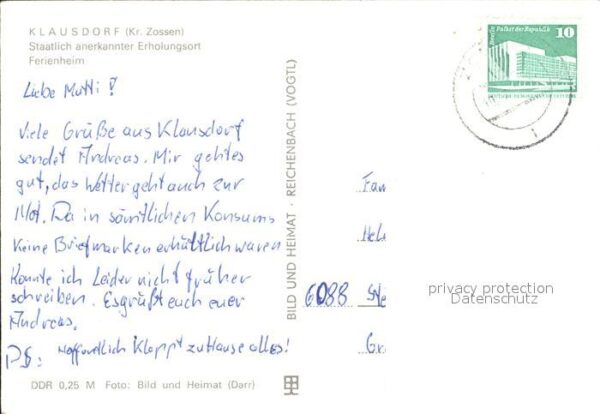 KLAUSDORF (Kr. Zossen)
Staatlich anerkannter Erholungsort
Ferienheim
Liebe Mutti!
Viele Grüße aus Klausdorf
sendet Andreas. Mir gehtes
gut, das Wetter geht auch zur
Not. Da in sämtlichen Konsums
keine Briefmarken erhältlich waren
konnte ich Leider nicht früher
schreiben. Es grüßt euch euer
Andreas.
PS: Hoffentlich Klappt zuHause alles!
DDR 0,25 M Foto: Bild und Heimat (Darr)
BILD UND HEIMAT · REICHENBACH (VOGTL)
Berlin Palast der Republik
10
Fam
6088
privacy protection
Datenschutz